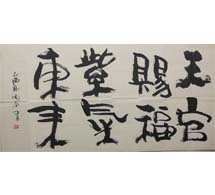 天官
賜福
紫氣
東来